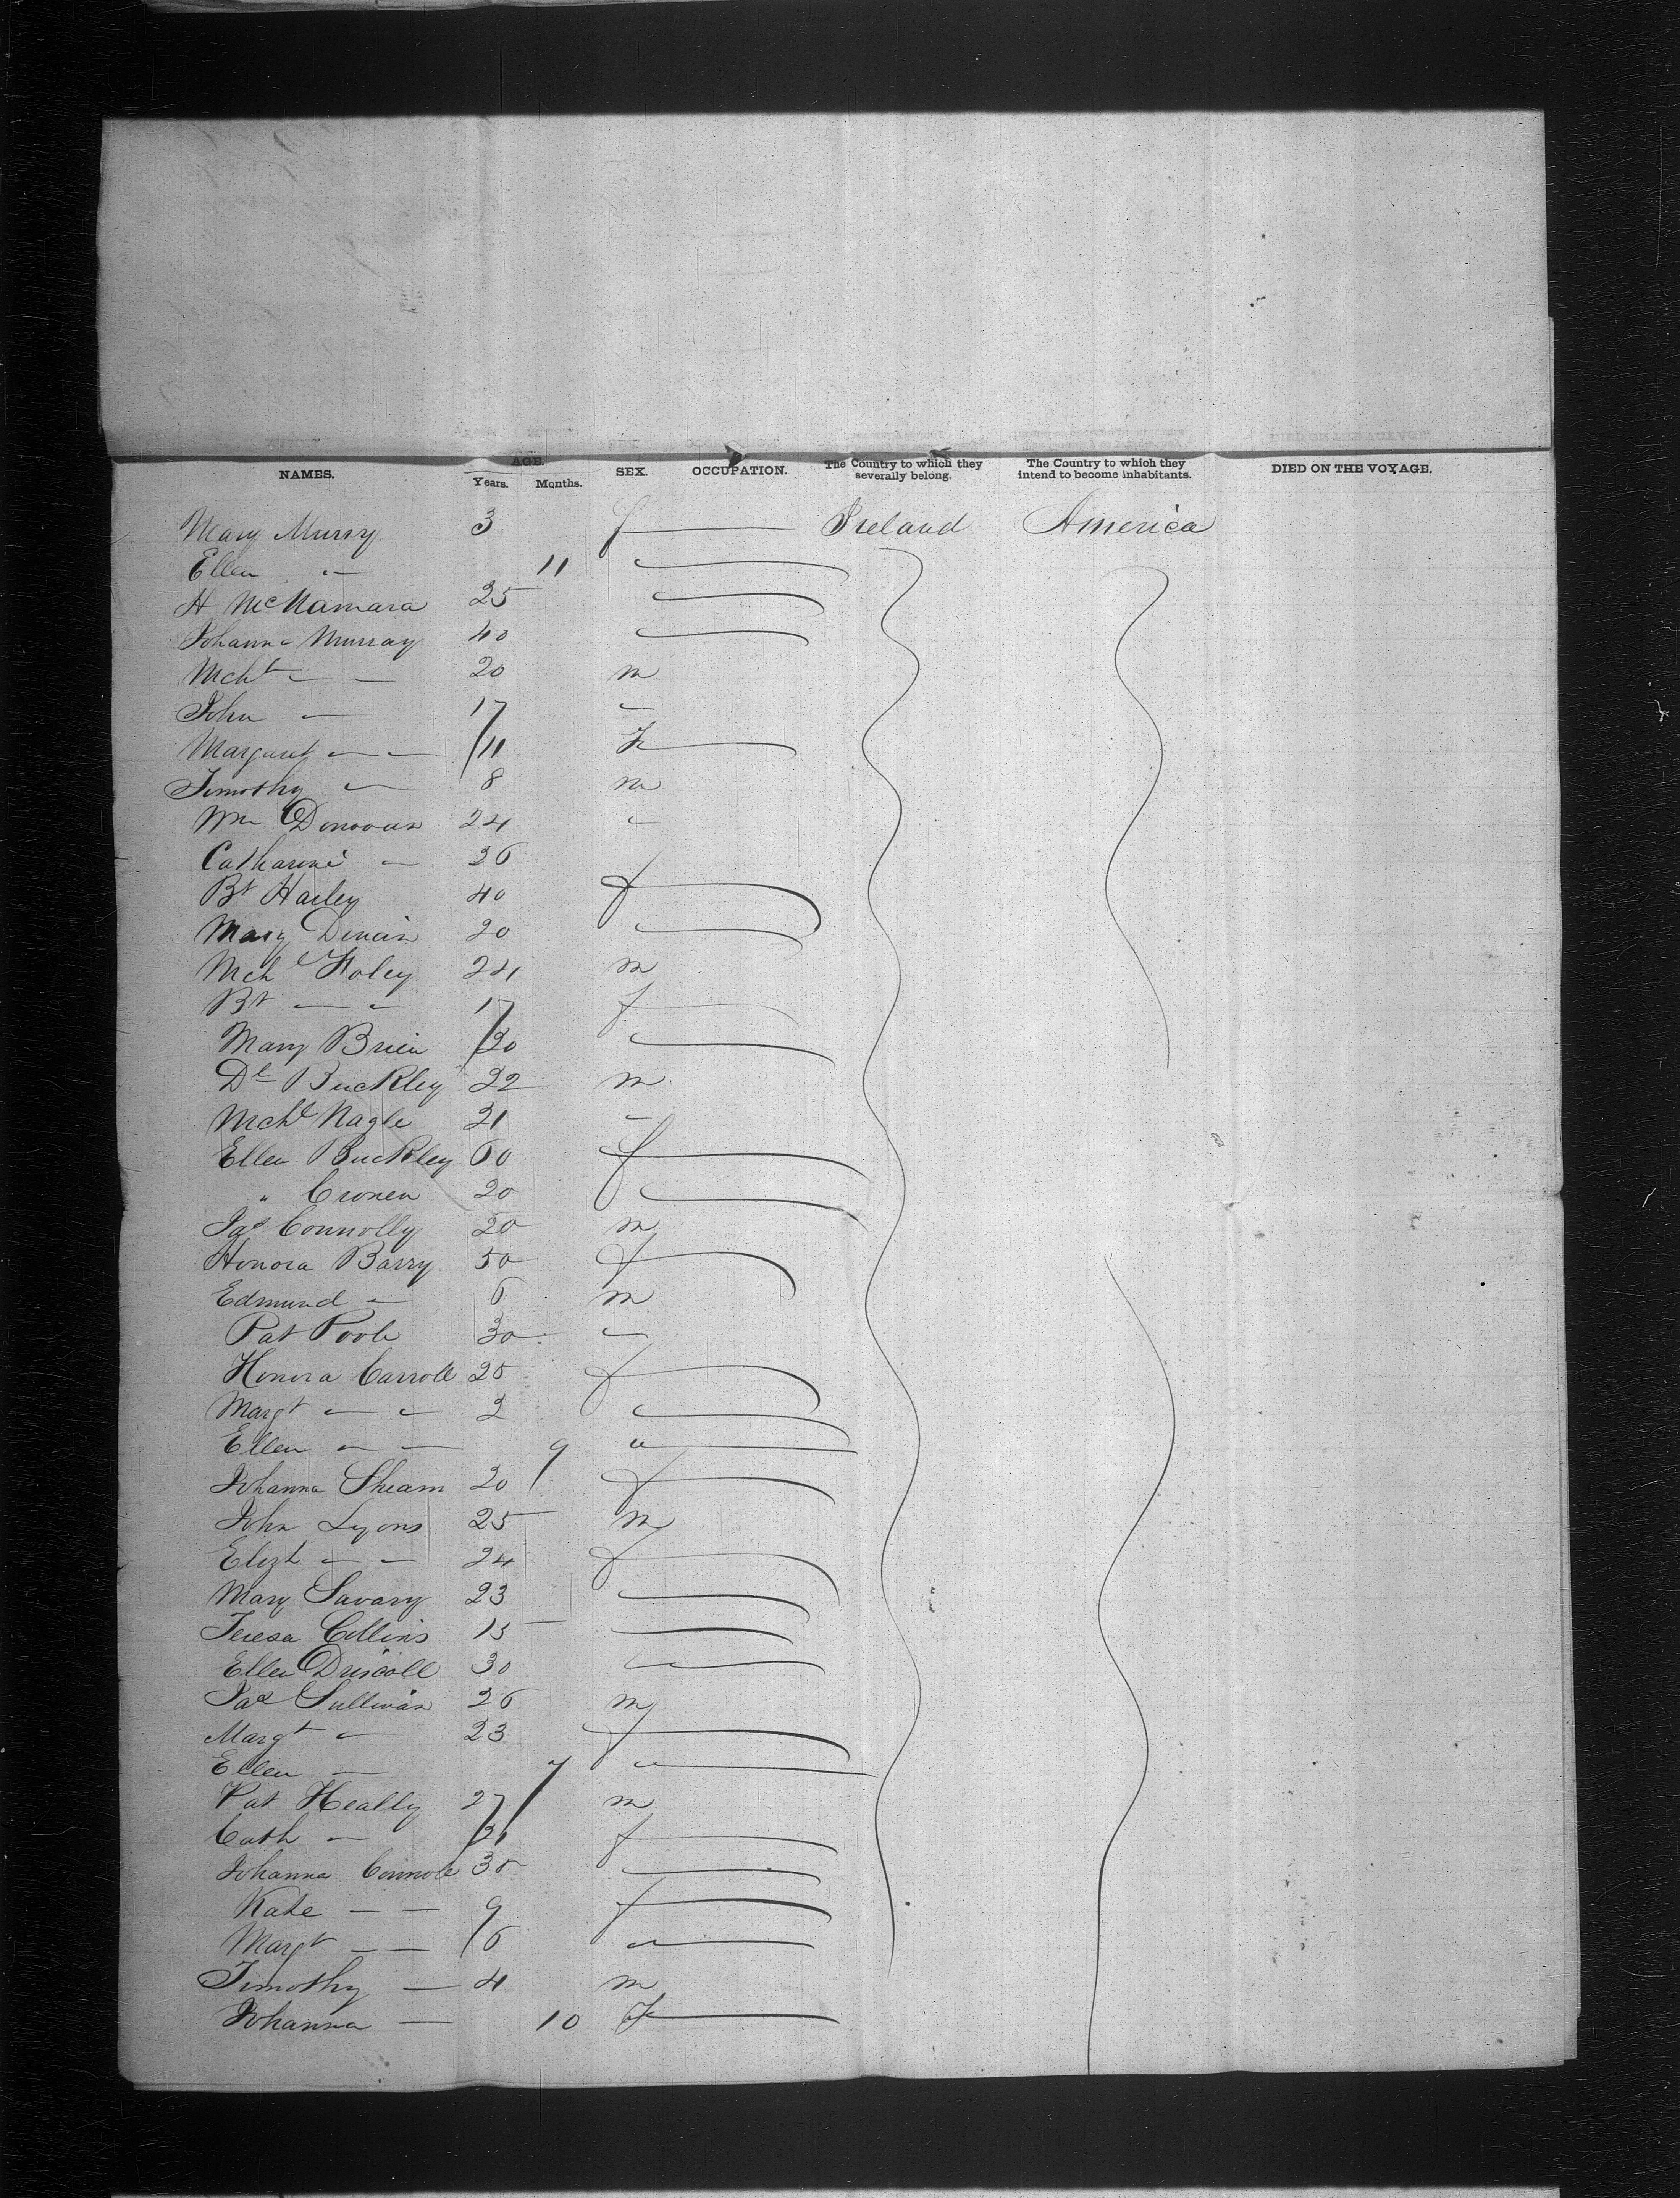 NAMES. AGE. Years. Months. SEX. OCCUPATION. The Country to which they severally belong. The Country to which they intend to become inhabitants. DIED ON THE VOYAGE.
Mary Murry 3 f Ireland America
Ellen " 11
H McNamara 25
Johanna Murray 40
Mchl — — 20 m
John — 17 —
Margaret — — 11 F
Timothy — 8 m
Wm Donovan 24 —
Catharine — 26
Bt Harley 40 f
Mary Dinan 20
Mchl Foley 24 m
Bt — — 17 f
Mary Brien 30
Dl Buckley 22 m
Mchl Nagle 21 —
Ellen Buckley 60 f
" Cronen 20
Jas Connolly 20 m
Honora Barry 50 f
Edmund — 6 m
Pat Poole 30 —
Honora Carroll 25 f
Margt — — 2
Ellen — — 9 "
Johanna Sheam 20 f
John Lyons 25 m
Elizh — — 24 f
Mary Savary 23
Teresa Collins 15
Ellen Driscoll 30
Jas Sullivan 26 m
Margt — 23 f
Ellen — 7 "
Pat Heally 27 m
Cath — 21 f
Johanna 35
Kate — — 9 f
Margt — — 6 "
Timothy — 4 m
Johanna — 10 F